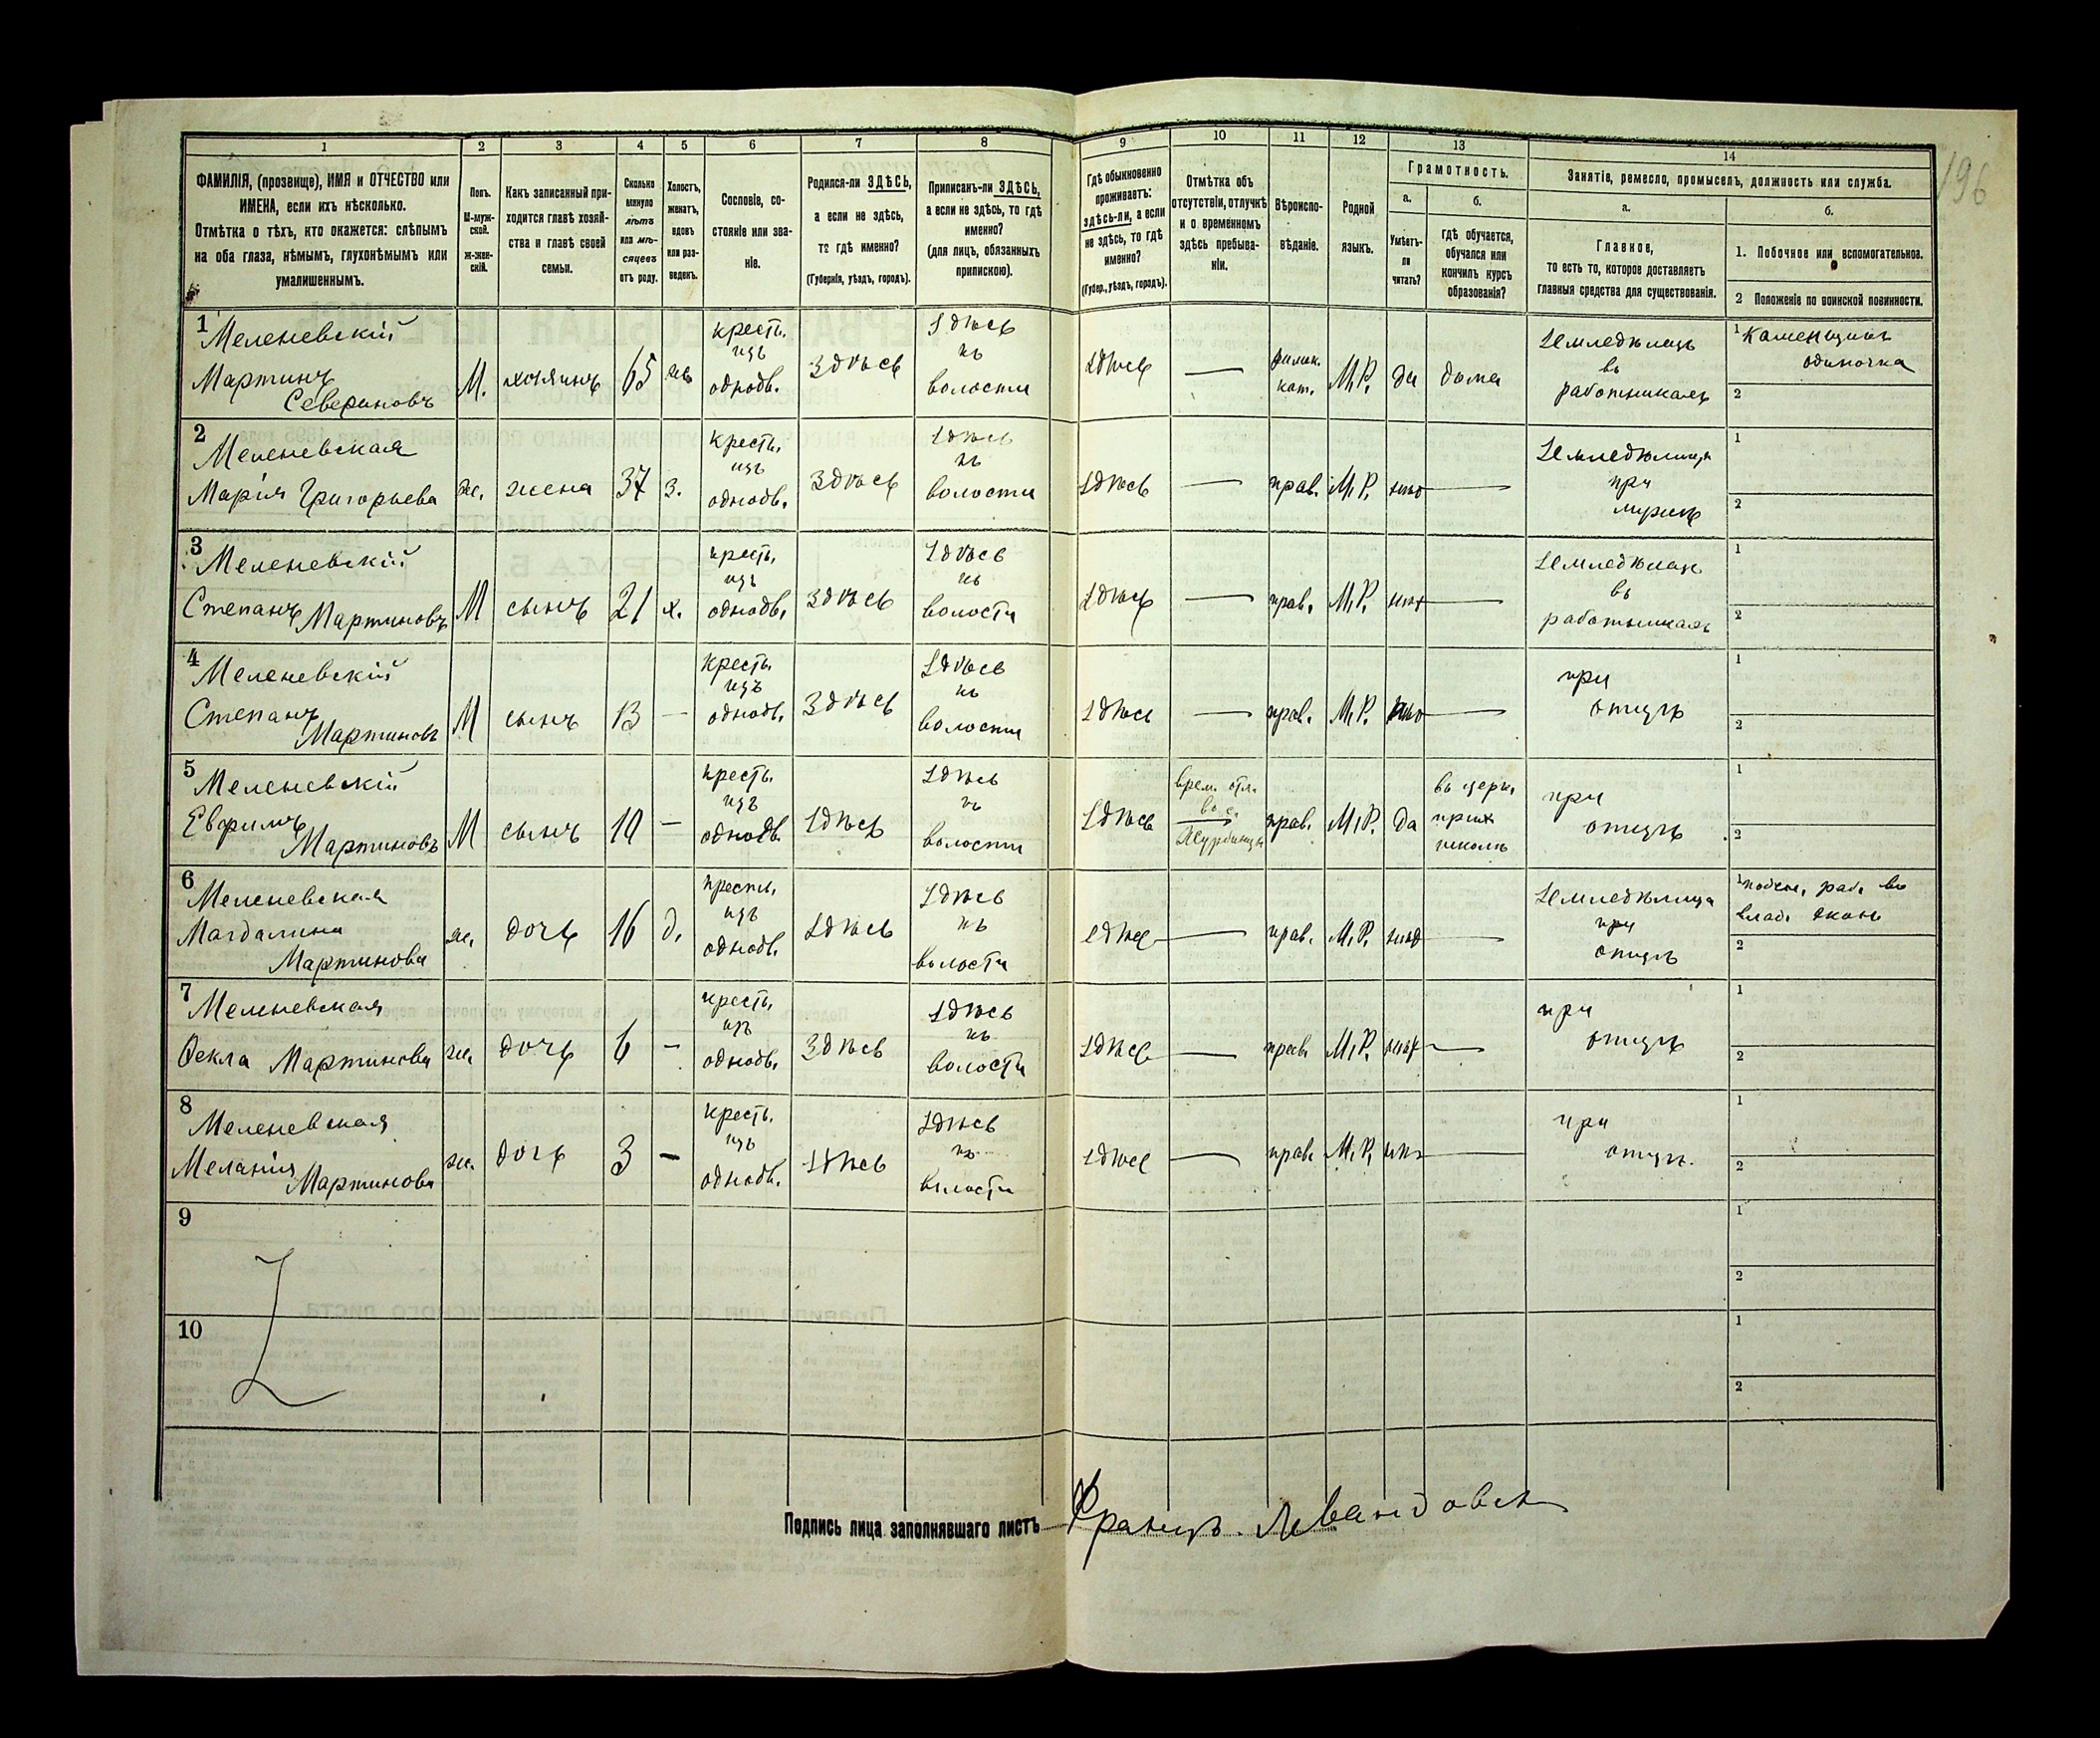 196
1 2 3 4 5 6 7 8 9 10 11 12 13 14
ФАМИЛІЯ, (прозвище), ИМЯ и ОТЧЕСТВО или
ИМЕНА, если ихъ нѣсколько.
Отмѣтка о тѣхъ, кто окажется: слѣпымъ
на оба глаза, нѣмымъ, глухонѣмымъ или
умалишеннымъ.
Полъ.
М-муж-
ской.
Ж-жен-
скій.
Какъ записанный при-
ходится главѣ хозяй-
ства и главѣ своей
семьи.
Сколько
минуло
лѣтъ
или мѣ-
сяцевъ
отъ роду.
Холостъ,
женатъ,
вдовъ
или раз-
веденъ.
Сословіе, со-
стояніе или зва-
ніе.
Родился-ли ЗДѢСЬ,
а если не здѣсь,
то гдѣ именно?
(Губернія, уѣздъ, городъ).
Приписанъ-ли ЗДѢСЬ,
а если не здѣсь, то гдѣ
именно?
(для лицъ, обязанныхъ
припискою).
Гдѣ обыкновенно
проживаетъ:
здѣсь-ли, а если
не здѣсь, то гдѣ
именно?
(Губер., уѣздъ, городъ).
Отмѣтка объ
отсутствіи, отлучкѣ
и о временномъ
здѣсь пребыва-
ніи.
Вѣроиспо-
вѣданіе.
Родной
языкъ.
Грамотность.
а.
Умѣетъ-
ли
читать?
б.
Гдѣ обучается,
обучался или
кончилъ курсъ
образованія?
Занятіе, ремесло, промыселъ, должность или служба.
а.
Главное,
то есть то, которое доставляетъ
главныя средства для существованія.
б.
1. Побочное или вспомогательное.
2 Положеніе по воинской повинности.
1 Меленевскій
Мартинъ
Севериновъ
М. хозяинъ 65 жен
кресть.
изъ
однодв.
Здѣсь
Здѣсь
къ
волости
Здѣсь — римск.
кат.
М.Р. да дома
Земледѣлецъ
въ
работникахъ
1 Каменщикъ
одиночка
2
2 Меленевская
Марія Григорьева
ж. жена 37 з.
кресть.
изъ
однодв.
Здѣсь
Здѣсь
къ
волости
Здѣсь — прав. М.Р. нѣтъ —
Земледѣлица
при
мужѣ
1
2
3 Меленевскій
Степанъ Мартиновъ
М сынъ 21 х.
кресть.
изъ
однодв.
Здѣсь
Здѣсь
къ
волости
Здѣсь — прав. М.Р. нѣтъ —
Земледѣлецъ
въ
работникахъ
1
2
4 Меленевскій
Степанъ
Мартиновъ
М сынъ 13 —
кресть.
изъ
однодв.
Здѣсь
Здѣсь
къ
волости
Здѣсь — прав. М.Р. нѣтъ —
при
отцѣ
1
2
5 Меленевскій
Евфимъ
Мартиновъ
М сынъ 10 —
кресть.
изъ
однодв.
Здѣсь
Здѣсь
къ
волости
Здѣсь
врем. отл.
въ с.
прав. М.Р. да
въ церк.
прих
школѣ
при
отцѣ
1
2
6 Меленевская
Магдалина
Мартинова
ж. дочь 16 д.
кресть.
изъ
однодв.
Здѣсь
Здѣсь
къ
волости
Здѣсь — прав. М.Р. нѣтъ —
Земледѣлица
при
отцѣ
1 поден. раб. во
влад. экон
2
7 Меленевская
Ѳекла Мартинова
ж. дочь 6 —
кресть.
изъ
однодв.
Здѣсь
Здѣсь
къ
волости
Здѣсь — прав. М.Р. нѣтъ —
при
отцѣ
1
2
8 Меленевская
Меланія
Мартинова
ж. дочь 3 —
кресть.
изъ
однодв.
Здѣсь
Здѣсь
къ
волости
Здѣсь — прав. М.Р. нѣтъ —
при
отцѣ.
1
2
9
1
2
10
1
2
Подпись лица заполнявшаго листъ Францъ Левандовск